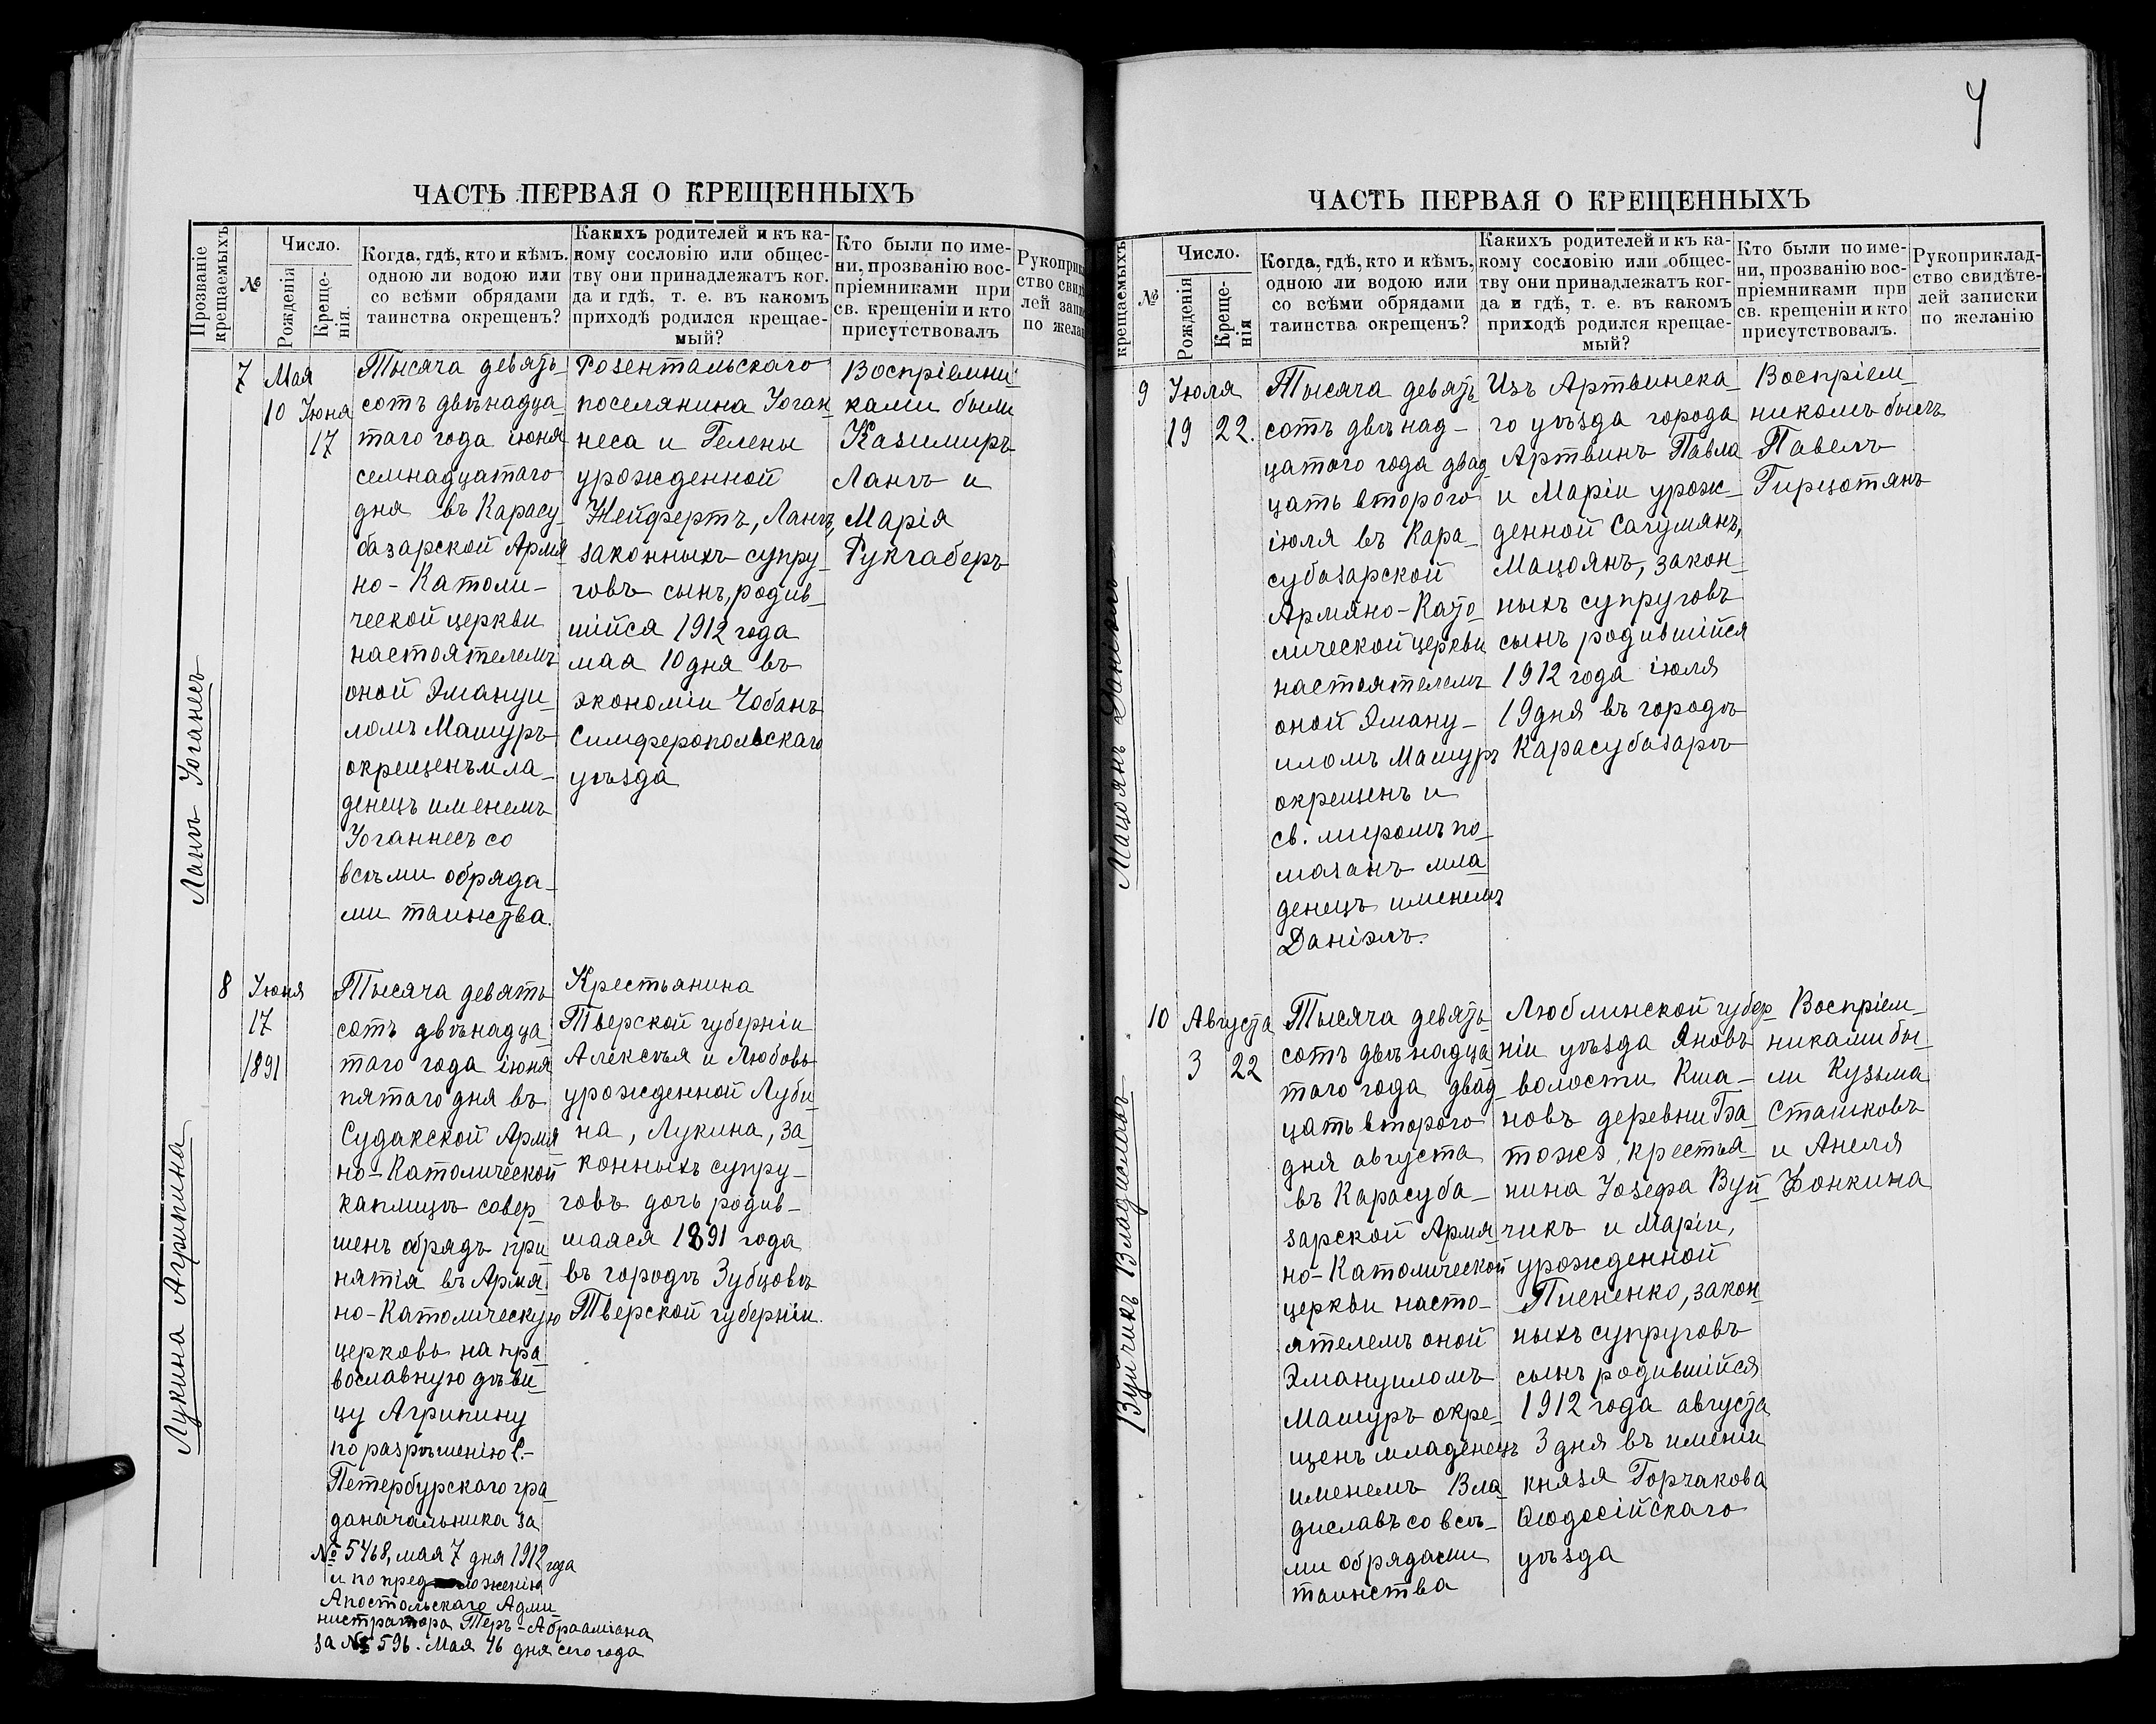 ЧАСТЬ ПЕРВАЯ О КРЕЩЕННЫХЪ
Прозваніе
крещаемыхъ
№
Число.
Рожденія
Креще-
нія.
Когда, гдѣ, кто и кѣмъ.
одною ли водою или
со всѣми обрядами
таинства окрещенъ?
Какихъ родителей и къ ка-
кому сословію или общес-
тву они принадлежатъ ког.
да и гдѣ, т. е. въ какомъ
приходѣ родился крещае-
мый?
Кто были по име-
ни, прозванію вос-
пріемниками при
св. крещеніи и кто
присутствовалъ
Рукоприк
ство свид
лей запи
по желан
Лангъ Іоганесъ
7
Мая
10 Іюня
17
Тысяча девять-
сотъ двѣнадца-
таго года іюня
семнадцатаго
дня въ Карасу-
базарской Армя
но-Католи-
ческой церкви
настоятелемъ
оной Эмануи-
ломъ Машуръ
окрещенъ мла-
денецъ именемъ
Іоганнесъ со
всѣми обряда-
ми таинства.
Розентальскаго
поселянина Іоган
неса и Гелены
урожденной
Нейфертъ, Лангъ,
законныхъ супру-
говъ сынъ, родив-
шійся 1912 года
мая 10 дня въ
экономіи Чобанъ
Симферопольскаго
уѣзда
Воспріемни-
ками были
Казимиръ
Лангъ и
Марія
Рукгаберъ
Лукина Агрипина
8
Іюня
17
1891
Тысяча девять
сотъ двѣнадца
таго года іюня
пятаго дня въ
Судакской Армя
но-Католической
каплицѣ совер-
шенъ обрядъ при
нятія въ Армя
но-Католическую
церковь на пра
вославную дѣви-
цу Агрипину
по разрѣшенію С.-
Петербурскаго гра
даначальника за
№ 5468, мая 7 дня 1912 года
и по предложенію
Апостольскаго Адми
нистратора Теръ-Абрааміана
за № 596. Мая 16 дня сего года
Крестьянина
Тверской губерніи
Алексѣя и Любовь
урожденной Луби-
на, Лукина, за-
конныхъ супру-
говъ дочь родив-
шаяся 1891 года
въ городѣ Зубцовѣ
Тверской губерніи.
4
ЧАСТЬ ПЕРВАЯ О КРЕЩЕННЫХЪ
крещаемыхъ
№
Число.
Рожденія
Креще-
нія
Когда, гдѣ, кто и кѣмъ,
одною ли водою или
со всѣми обрядами
таинства окрещенъ?
Какихъ родителей и къ ка-
кому сословію или общес-
тву они принадлежатъ ког-
да и гдѣ, т. е. въ какомъ
приходѣ родился крещае-
мый?
Кто были по име-
ни, прозванію вос-
пріемниками при
св. крещеніи и кто
присутствовалъ.
Рукоприклад-
ство свидѣте-
лей записки
по желанію
Мацоянъ Даніелъ
9
Іюля
19 22.
Тысяча девять
сотъ двѣнад-
цатаго года двад
цать второго
іюля въ Кара-
субазарской
Армяно-Като
лической церкви
настоятелемъ
оной Эману-
иломъ Машуръ
окрещенъ и
св. миромъ по-
мазанъ мла
денецъ именемъ
Даніэлъ.
Изъ Артвинска-
го уѣзда города
Артвинъ Павла
и Маріи урож-
денной Сагумянъ,
Мацоянъ, закон-
ныхъ супруговъ
сынъ родившійся
1912 года іюля
19 дня въ городѣ
Карасубазарѣ
Воспріем-
никомъ былъ
Павелъ
Гирцотянъ
Вуйчикъ Владиславъ
10
Августа
3 22
Тысяча девять
сотъ двѣнадца
таго года двад-
цать второго
дня августа
въ Карасуба-
зарской Армя
но-Католической
церкви насто-
ятелемъ оной
Эмануиломъ
Машуръ окре-
щенъ младенецъ
именемъ Вла-
диславъ со всѣ-
ми обрядами
таинства
Люблинской губер-
ніи уѣзда Яновъ
волости Кша-
новъ деревни Ба
тожъ, крестья-
нина Іозефа Вуй-
чикъ и Маріи,
урожденной
Пиененко, закон-
ныхъ супруговъ
сынъ родившійся
1912 года августа
3 дня въ имѣніи
князя Горчакова
Ѳеодосійскаго
уѣзда
Воспріем-
никами бы-
ли Кузьма
Сташковъ
и Анеля
Фонкина